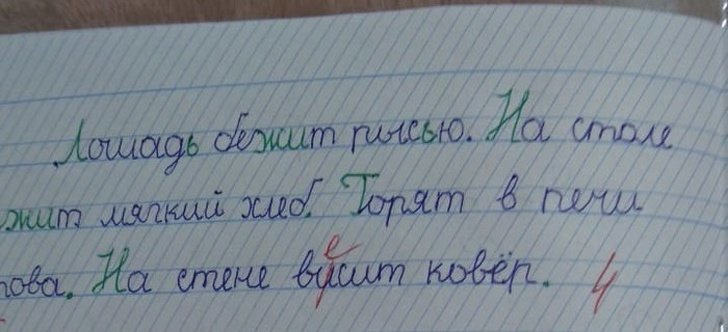 Лошадь бежит рысью. На столе
жит мягкий хлеб. Горят в печи
ова. На стене висит ковёр. 4
е